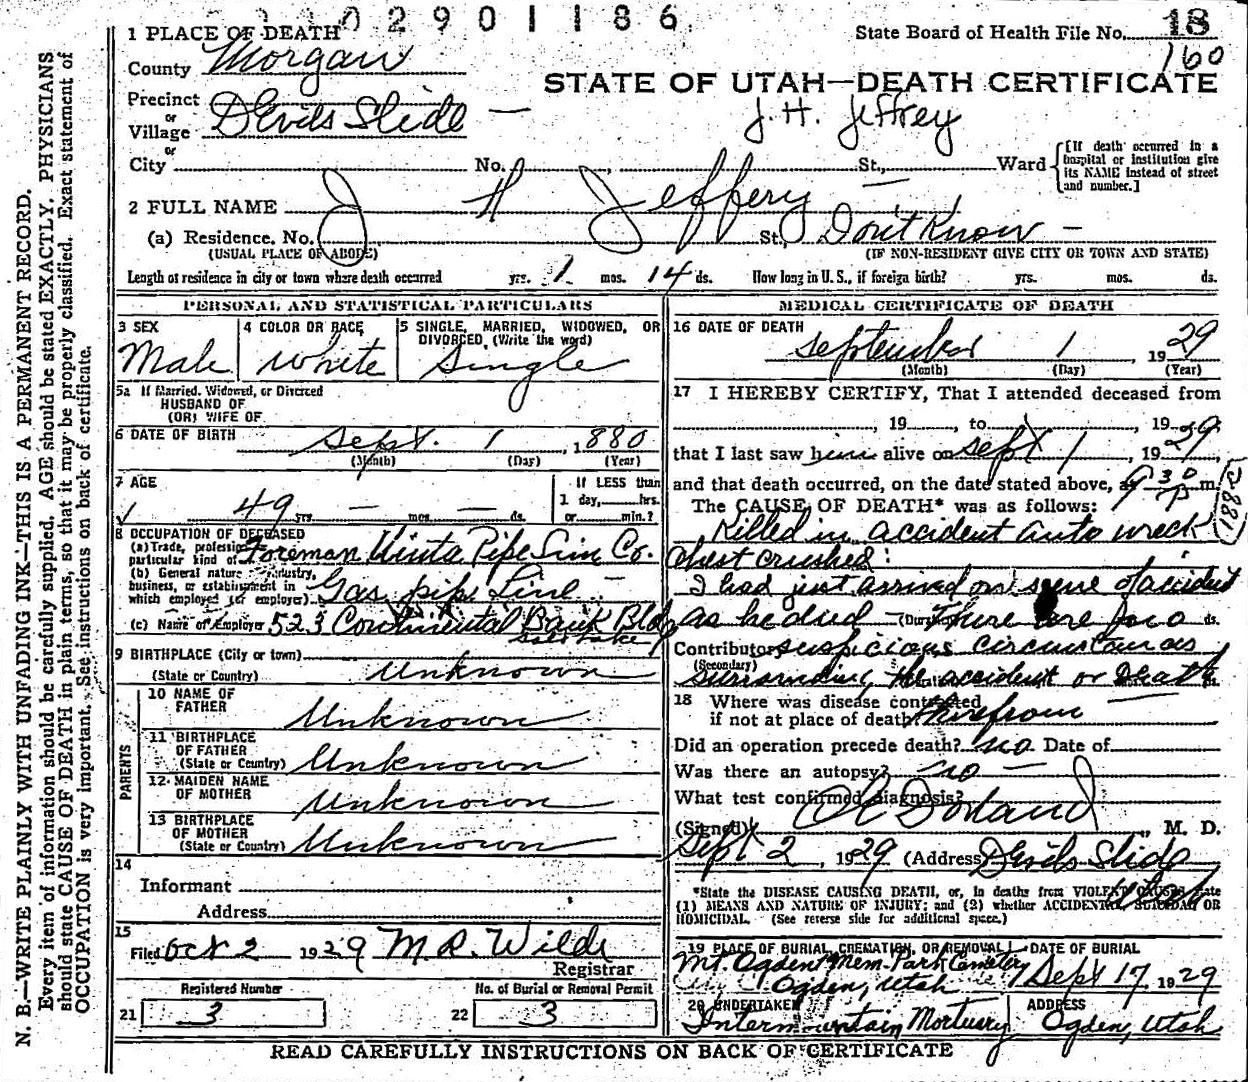 0 2 9 0 1 1 8 6
1 PLACE OF DEATH
State Board of Health File No. 18
160
County Morgan
STATE OF UTAH—DEATH CERTIFICATE
Precinct or Village Devils Slide —
J. H. Jeffrey
or City No. , St., Ward
[If death occurred in a hospital or institution give its NAME instead of street and number.]
2 FULL NAME J H Jeffery
(a) Residence. No. St., Don't Know —
(USUAL PLACE OF ABODE)
(IF NON-RESIDENT GIVE CITY OR TOWN AND STATE)
Length of residence in city or town where death occurred yrs. 1 mos. 14 ds. How long in U. S., if foreign birth? yrs. mos. ds.
PERSONAL AND STATISTICAL PARTICULARS
3 SEX Male
4 COLOR OR RACE White
5 SINGLE, MARRIED, WIDOWED, OR DIVORCED, (Write the word) Single
5a If Married, Widowed, or Divorced
HUSBAND OF
(OR) WIFE OF
6 DATE OF BIRTH Sept. 1, 1880
(Month) (Day) (Year)
7 AGE 49 yrs — mos. — ds.
If LESS than 1 day, hrs. or min.?
8 OCCUPATION OF DECEASED
(a) Trade, profession particular kind of Foreman Uinta Pipe Line Co.
(b) General nature industry, business, or establishment in which employed (or employer) Gas pipe Line
(c) Name of Employer 523 Continental Bank Bldg
Salt Lake
9 BIRTHPLACE (City or town)
(State or Country) Unknown
PARENTS
10 NAME OF FATHER Unknown
11 BIRTHPLACE OF FATHER (State or Country) Unknown
12 MAIDEN NAME OF MOTHER Unknown
13 BIRTHPLACE OF MOTHER (State or Country) Unknown
14
Informant
Address
15
Filed Oct 2 1929 M R. Wilde
Registrar
Registered Number
No. of Burial or Removal Permit
21 3
22 3
MEDICAL CERTIFICATE OF DEATH
16 DATE OF DEATH September 1, 1929
(Month) (Day) (Year)
17 I HEREBY CERTIFY, That I attended deceased from
, 19 , to , 1929.
that I last saw him alive on Sept 1, 1929
and that death occurred, on the date stated above, at 9 30 P m.
The CAUSE OF DEATH* was as follows:
188c
Killed in accident auto wreck
Chest crushed:
I had just arrived on scene of accident
as he died — (Duration) There are no ds.
Contributory suspicious circumstances
(Secondary) surrounding the accident or Death
18 Where was disease contracted
if not at place of death therefrom —
Did an operation precede death? no Date of
Was there an autopsy? no —
What test confirmed diagnosis?
(Signed) Dorland, M. D.
Sept 2, 1929 (Address) Devils Slide
Utah
*State the DISEASE CAUSING DEATH, or, in deaths from VIOLENT CAUSES, state
(1) MEANS AND NATURE OF INJURY; and (2) whether ACCIDENTAL, SUICIDAL OR
HOMICIDAL. (See reverse side for additional space.)
19 PLACE OF BURIAL, CREMATION, OR REMOVAL
Mt. Ogden Mem. Park Cemetery
Ogden, Utah
DATE OF BURIAL
Sept 17, 1929
20 UNDERTAKER
Intermountain Mortuary
ADDRESS
Ogden, Utah
READ CAREFULLY INSTRUCTIONS ON BACK OF CERTIFICATE
N. B.—WRITE PLAINLY WITH UNFADING INK—THIS IS A PERMANENT RECORD.
Every item of information should be carefully supplied. AGE should be stated EXACTLY. PHYSICIANS
should state CAUSE OF DEATH in plain terms, so that it may be properly classified. Exact statement of
OCCUPATION is very important. See instructions on back of certificate.